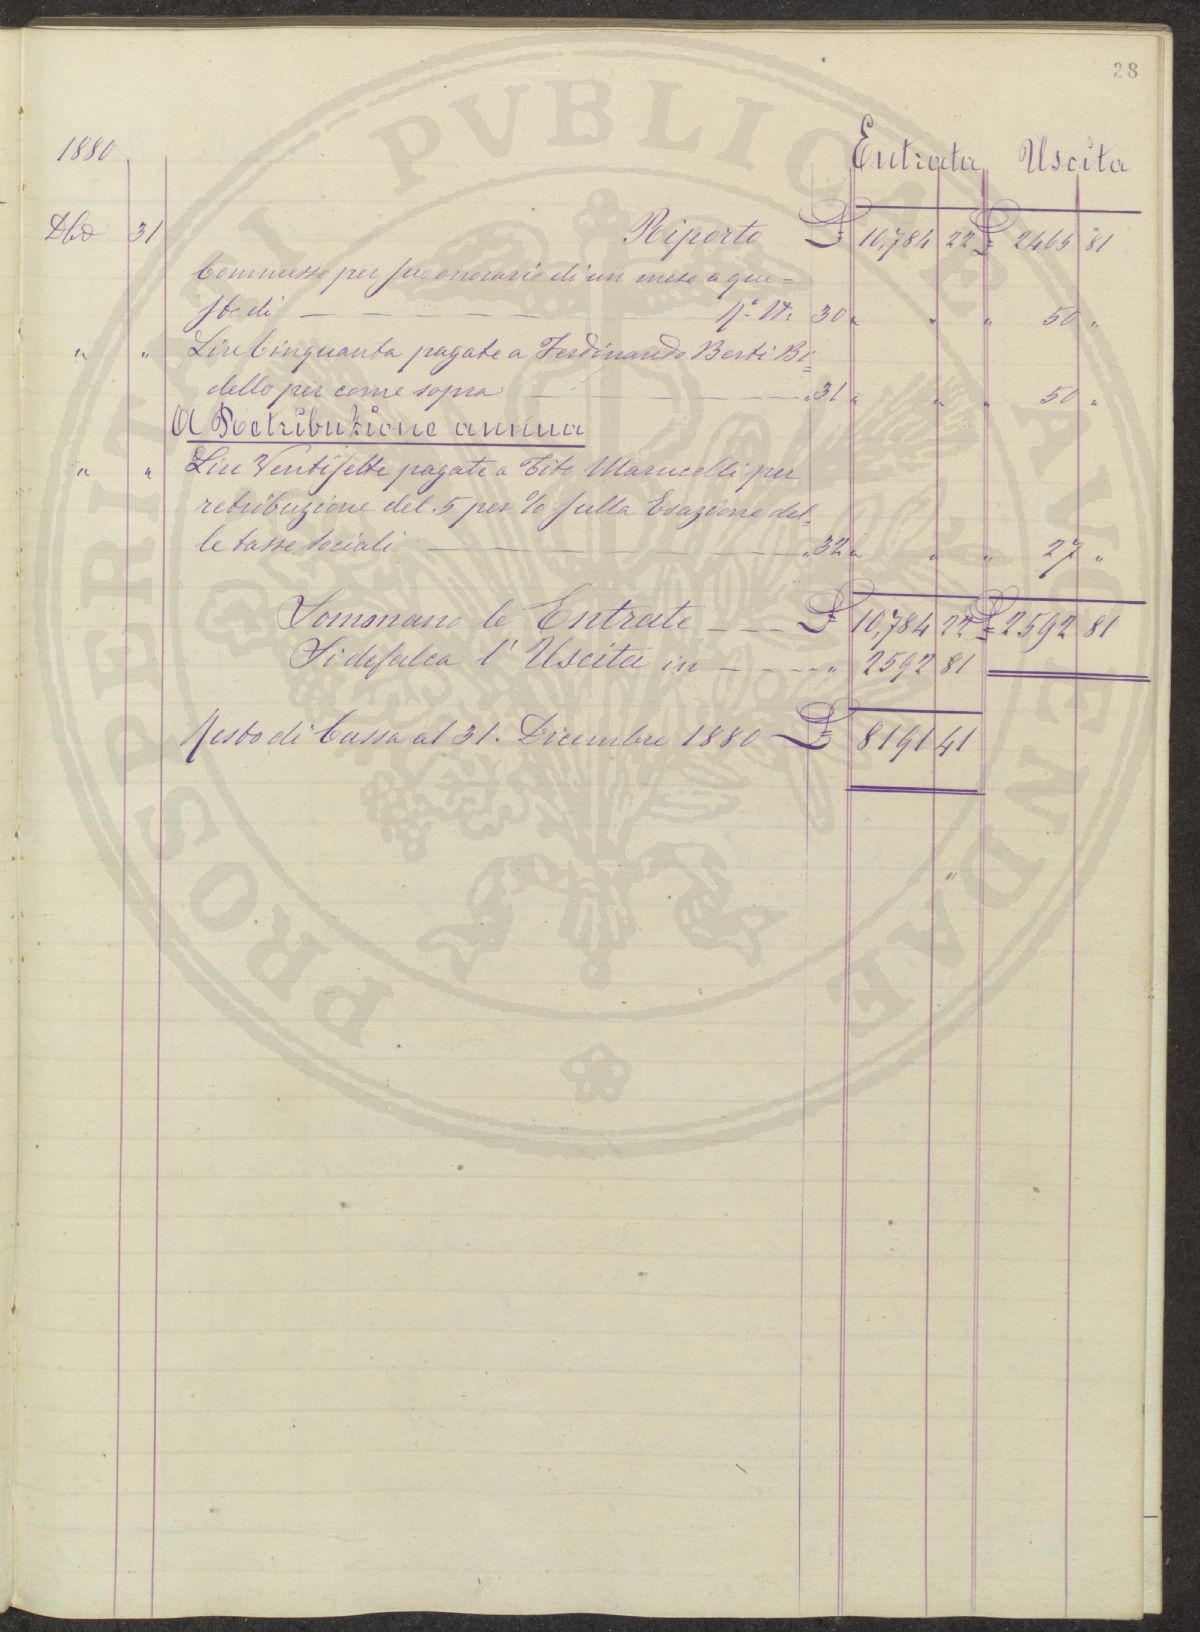 28
1880 Entrata Uscita
Dbr 31 Riporto £ 10,784 22 £ 2465 81
Commesso per suo onorario di un mese a que=
sto di — N° 30 " " " 50 "
" " Lire Cinquanta pagate a Ferdinando Berti Bi=
dello per come sopra — " 31 " " " 50 "
A Retribuzione annua
" " Lire Ventisette pagate a Tito Marucelli per
retribuzione del 5 per % sulla Esazione del=
le tasse sociali — " 32 " " " 27 "
Sommano le Entrate — £ 10,784 22 £ 2592 81
Si defalca l' Uscita in — " 2592 81
Resto di Cassa al 31. Dicembre 1880 £ 8191 41
PROSPERITATI PVBLICAE AVGENDAE